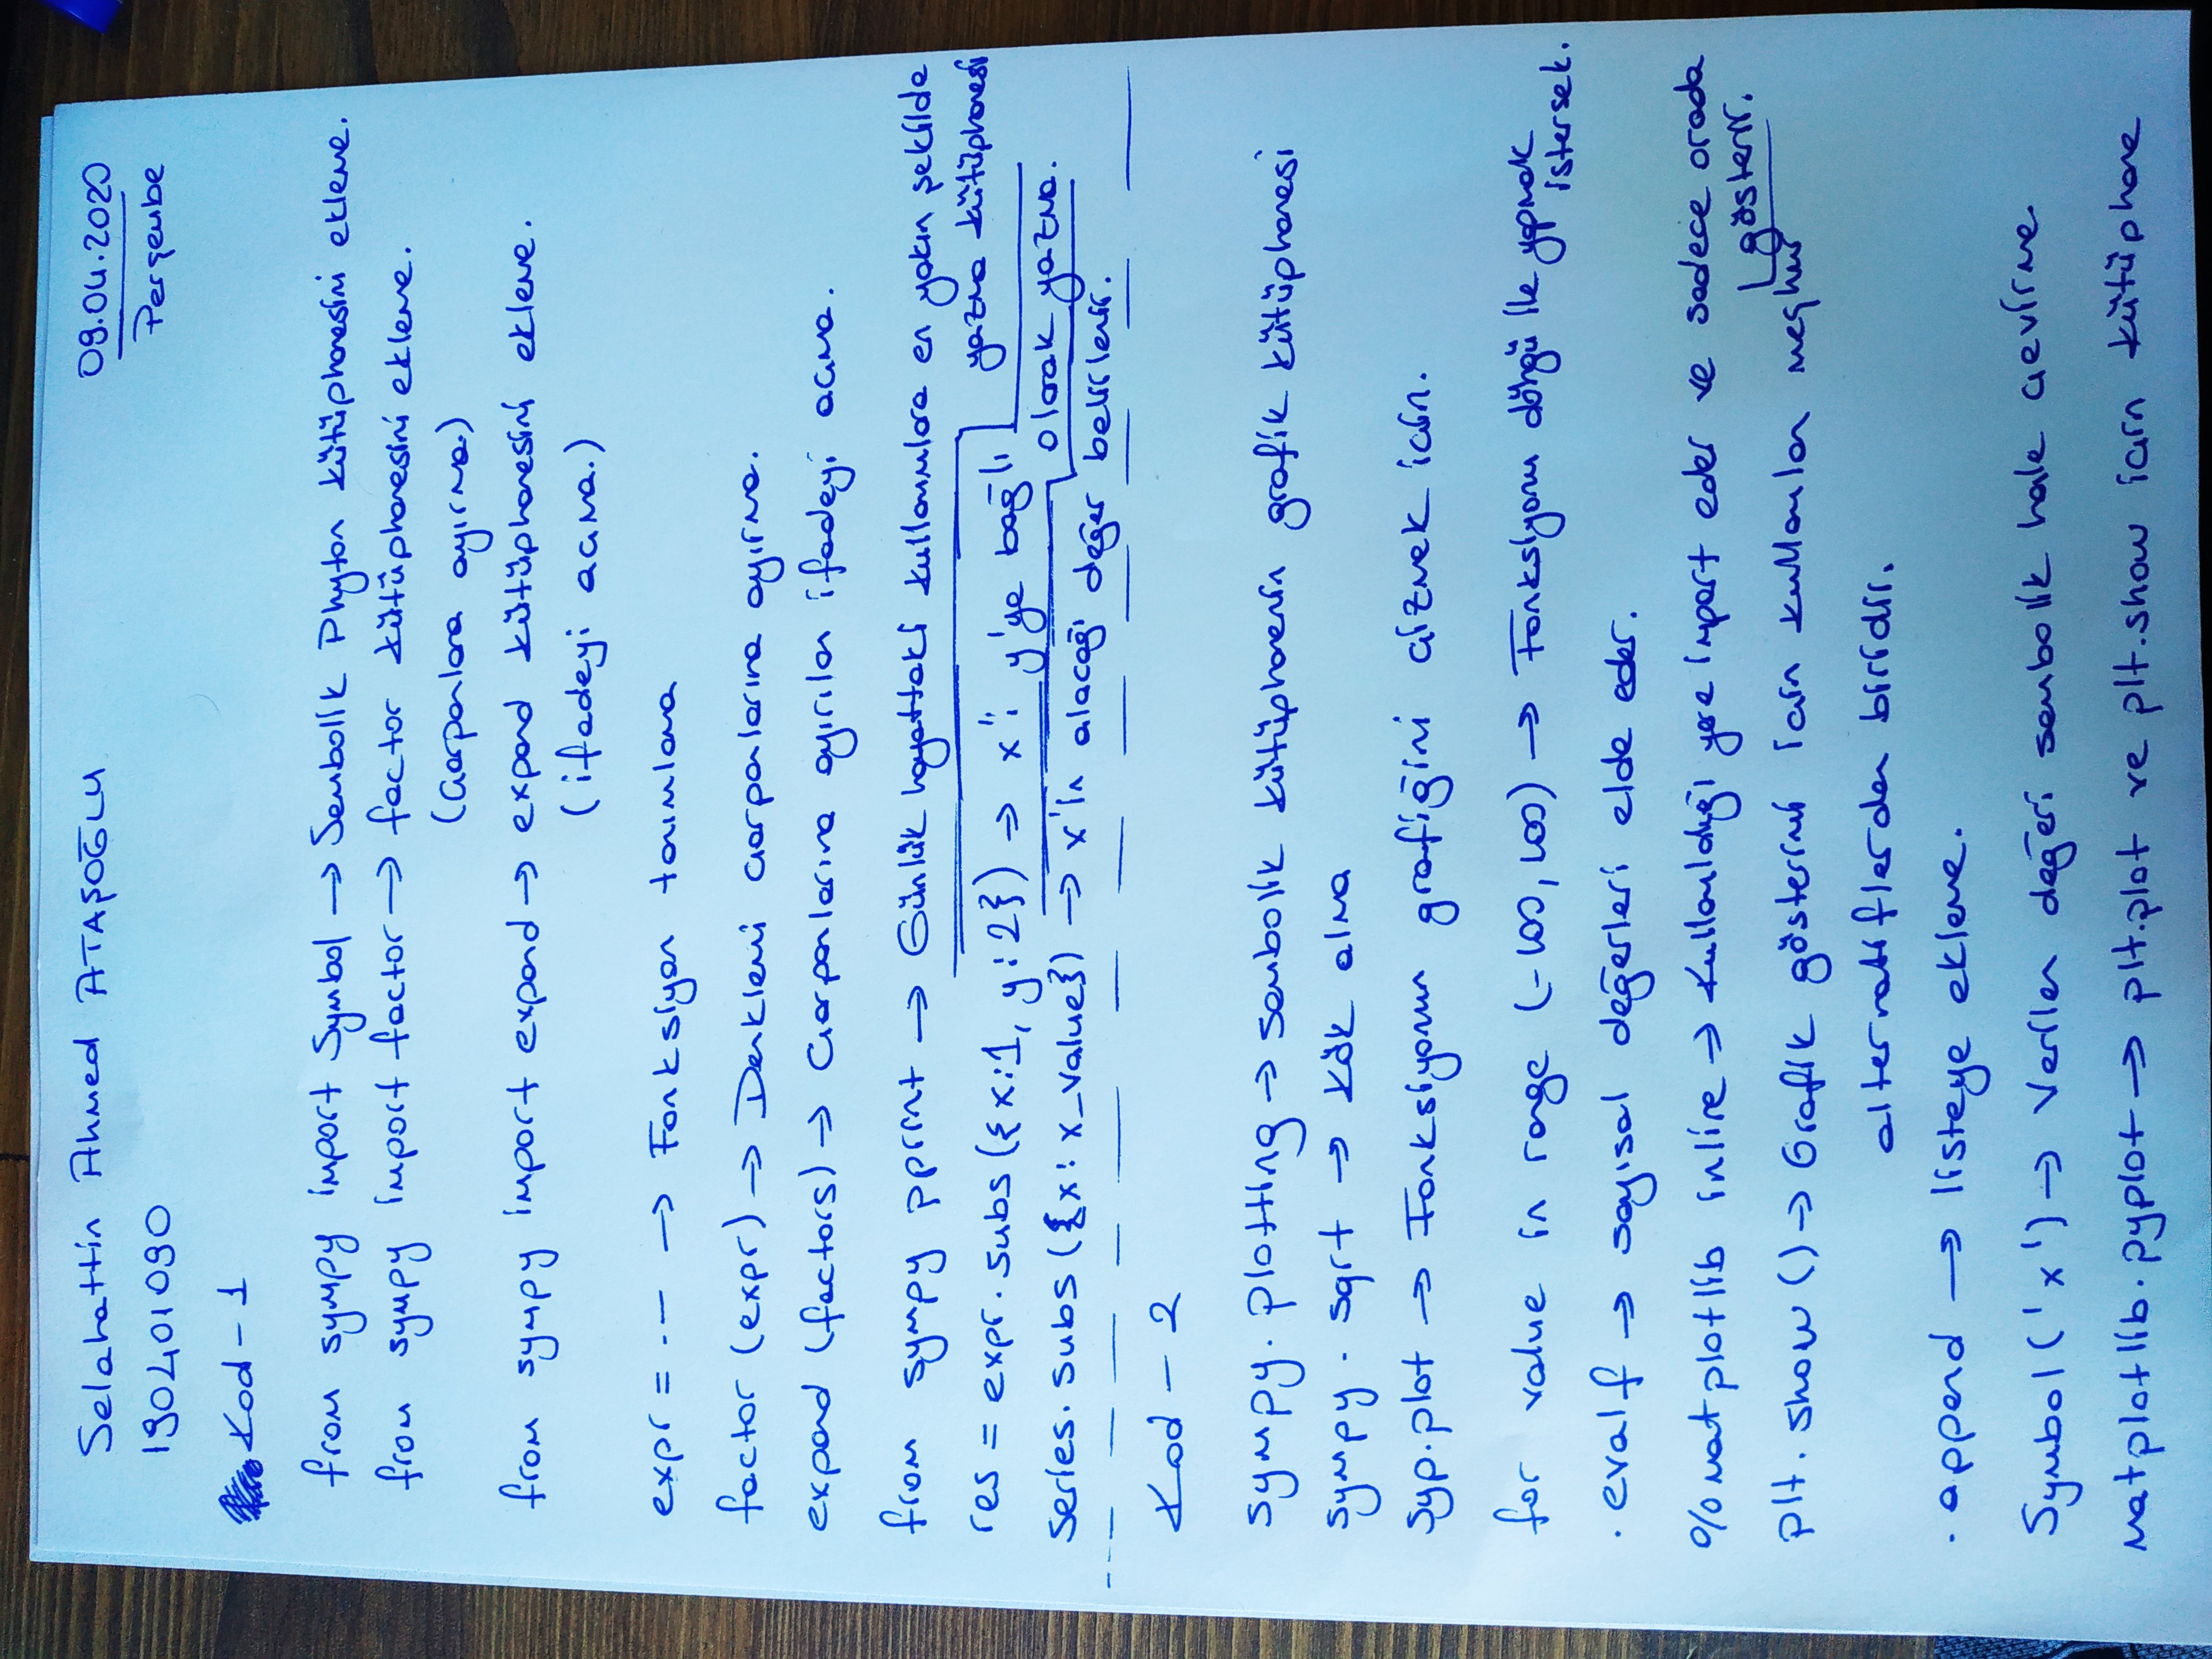 Selahattin Ahmed ATAŞOĞLU
09.04.2020
190401090
Perşembe
Kod - 1
from sympy import Symbol → Sembolik Phyton kütüphanesini ekleme.
from sympy import factor → factor kütüphanesini ekleme.
(Çarpanlara ayırma.)
from sympy import expand → expand kütüphanesini ekleme.
(ifadeyi açma.)
expr = --- → Fonksiyon tanımlama
factor (expr) → Denklemi çarpanlarına ayırma.
expand (factors) → Çarpanlarına ayırılan ifadeyi açma.
from sympy pprint → Günlük hayattaki kullanımlara en yakın şekilde
yazma kütüphanesi
res = expr.subs({x:1, y:2}) → x'i y'ye bağlı
olarak yazma.
series.subs({x: x_value}) → x'in alacağı değer belirlenir.
Kod - 2
sympy.plotting → sembolik kütüphanenin grafik kütüphanesi
sympy.sqrt → kök alma
syp.plot → Fonksiyonun grafiğini çizmek için.
for value in range (-100, 100) → Fonksiyonu döngü ile yapmak
istersek.
.evalf → sayısal değerleri elde eder.
%matplotlib inline → kullanıldığı yere import eder ve sadece orada
gösterir.
plt.show() → Grafik gösterimi için kullanılan meşhur
alternatiflerden biridir.
.append → listeye ekleme.
Symbol('x') → Verilen değeri sembolik hale çevirme.
matplotlib.pyplot → plt.plot ve plt.show için kütüphane